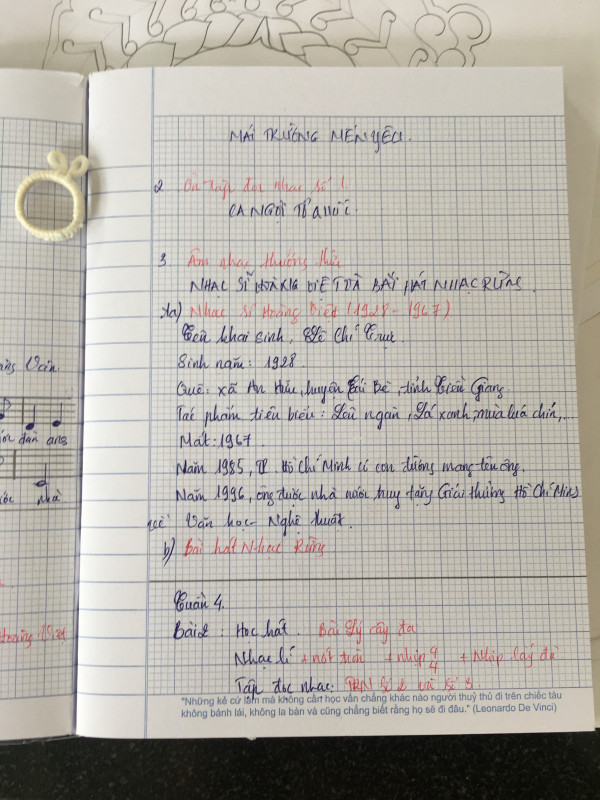 MÁI TRƯỜNG MẾN YÊU.
2 Ôn tập đọc nhạc số 1.
CA NGỢI TỔ QUỐC.
3. Âm nhạc thường thức
NHẠC SĨ HOÀNG VIỆT VÀ BÀI HÁT NHẠC RỪNG.
a) Nhạc sĩ Hoàng Việt (1928 - 1967)
Tên khai sinh, Lê Chí Trực.
Sinh năm: 1928.
Quê: xã An Hữu, huyện Cái Bè, tỉnh Tiền Giang.
Tác phẩm tiêu biểu: Lên ngàn, Lá xanh, mùa lúa chín,...
Mất: 1967.
Năm 1985, TP. Hồ Chí Minh có con đường mang tên ông.
Năm 1996, ông được nhà nước truy tặng Giải thưởng Hồ Chí Minh
về Văn học - Nghệ thuật.
b) Bài hát Nhạc Rừng
Tuần 4.
Bài 2: Học hát. Bài Lý cây đa
Nhạc lí + nốt tròn + nhịp 4/4 + Nhịp lấy đà
Tập đọc nhạc: TĐN số 2 và số 3.
"Những kẻ cứ làm mà không cần học vẫn chẳng khác nào người thuỷ thủ đi trên chiếc tàu
không bánh lái, không la bàn và cũng chẳng biết rằng họ sẽ đi đâu." (Leonardo De Vinci)